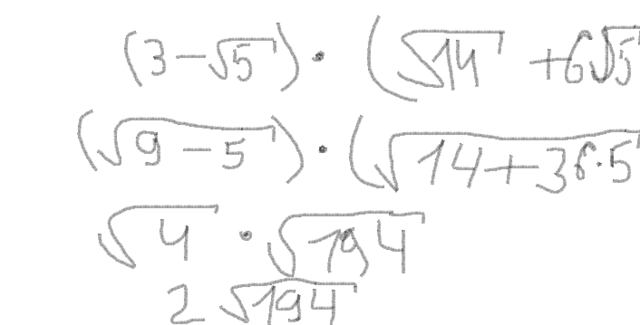 (3 - √5) · (√14 + 6√5
(√9 - 5) · (√14 + 36·5
√4 · √194
2 √194